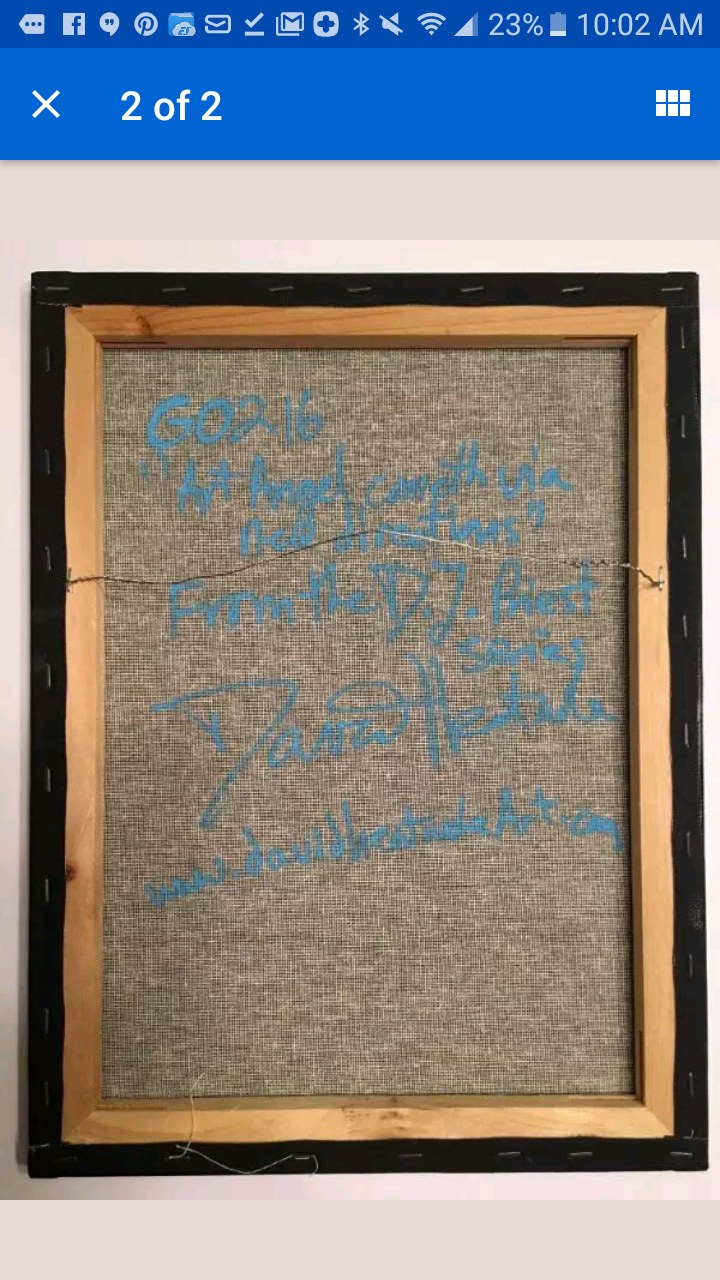 23% 10:02 AM
2 of 2
GO216
"Art Angel cometh via
new directions"
From the D.J. Priest
series
David
www.david